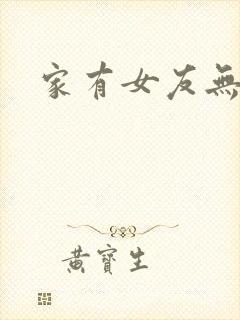 家有女友無
黃寶生